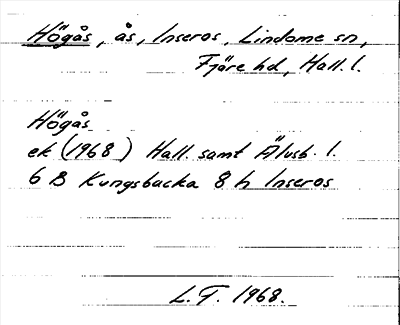 Högås, ås, Inseros, Lindome sn,
Fjäre hd, Hall. l.
Högås
ek (1968) Hall. samt Älvsb. l.
6 B Kungsbacka 8 h Inseros
L. F. 1968.